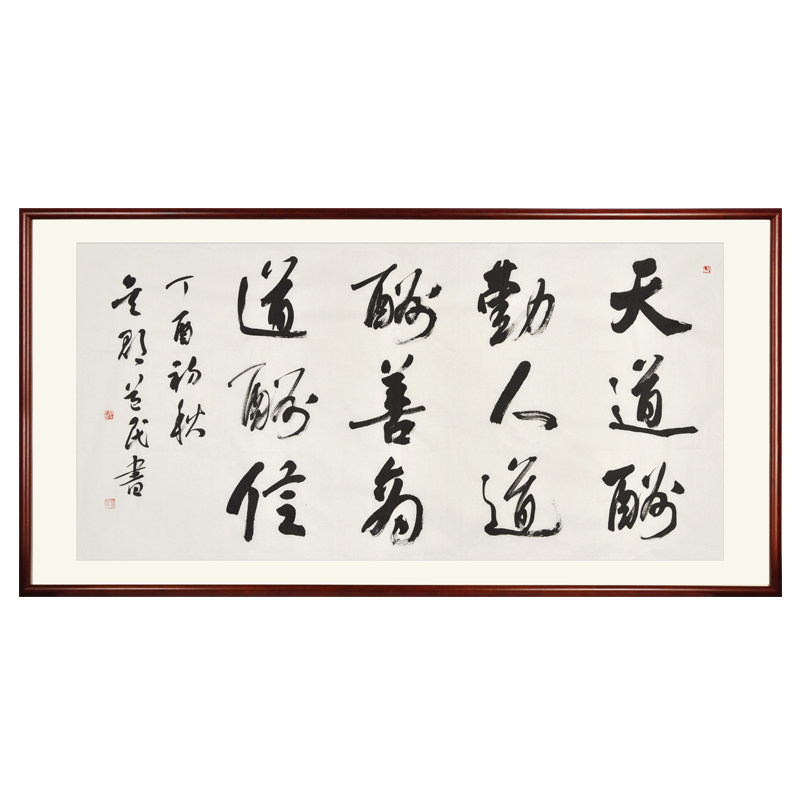 天道酬
勤人道
酬善商
道酬信
丁酉初秋
郡民書